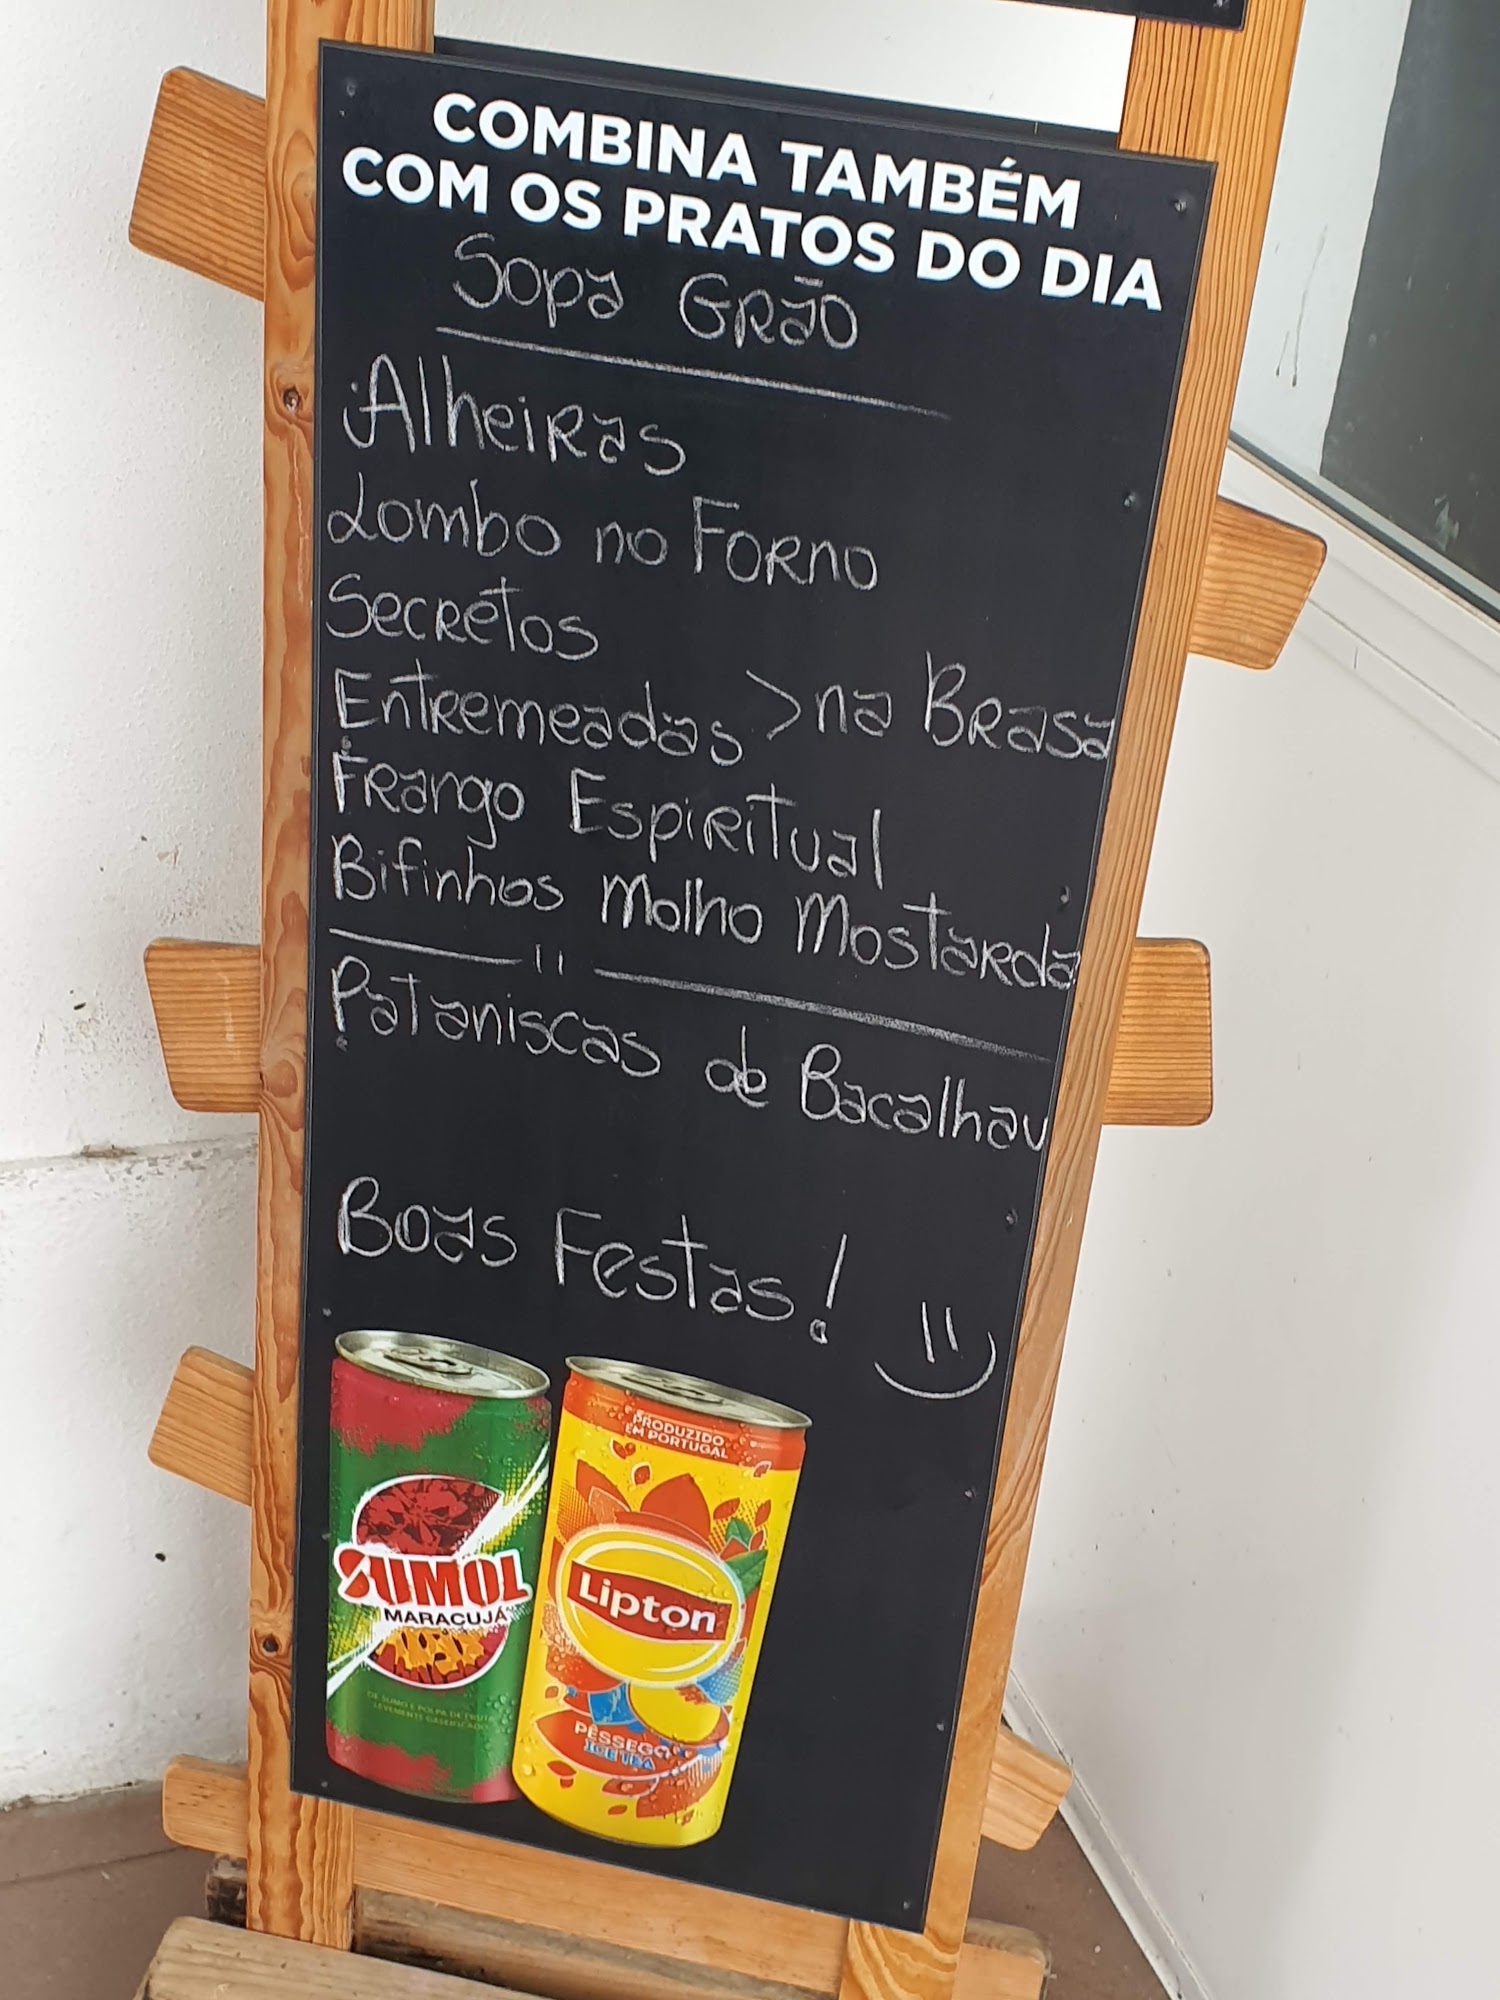 COMBINA TAMBÉM
COM OS PRATOS DO DIA
Sopa Grão
Alheiras
Lombo no Forno
Secretos
Entremeadas > na Brasa
Frango Espiritual
Bifinhos Molho Mostarda
Pataniscas de Bacalhau
Boas Festas!
SUMOL
MARACUJÁ
DE SUMO E POLPA DE FRUTA
LEVEMENTE GASEIFICADO
PRODUZIDO
EM PORTUGAL
Lipton
PÊSSEGO
ICE TEA